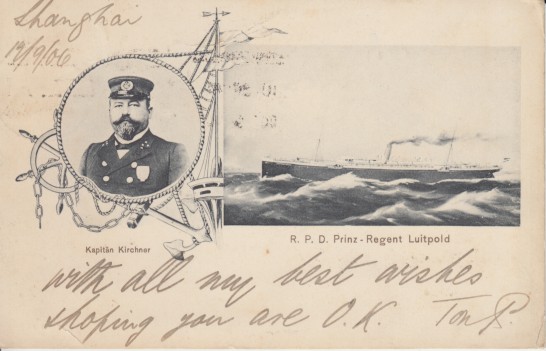 Shanghai
19/9/06
Kapitän Kirchner
R. P. D. Prinz-Regent Luitpold
with all my best wishes
hoping you are O.K. Ton P.